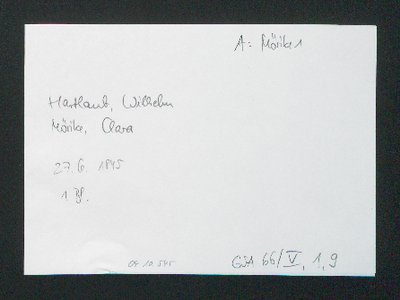 A: Mörike 1
Hartlaub, Wilhelm
Mörike, Clara
27. 6. 1845
1 Bl.
GSA 66/V, 1, 9